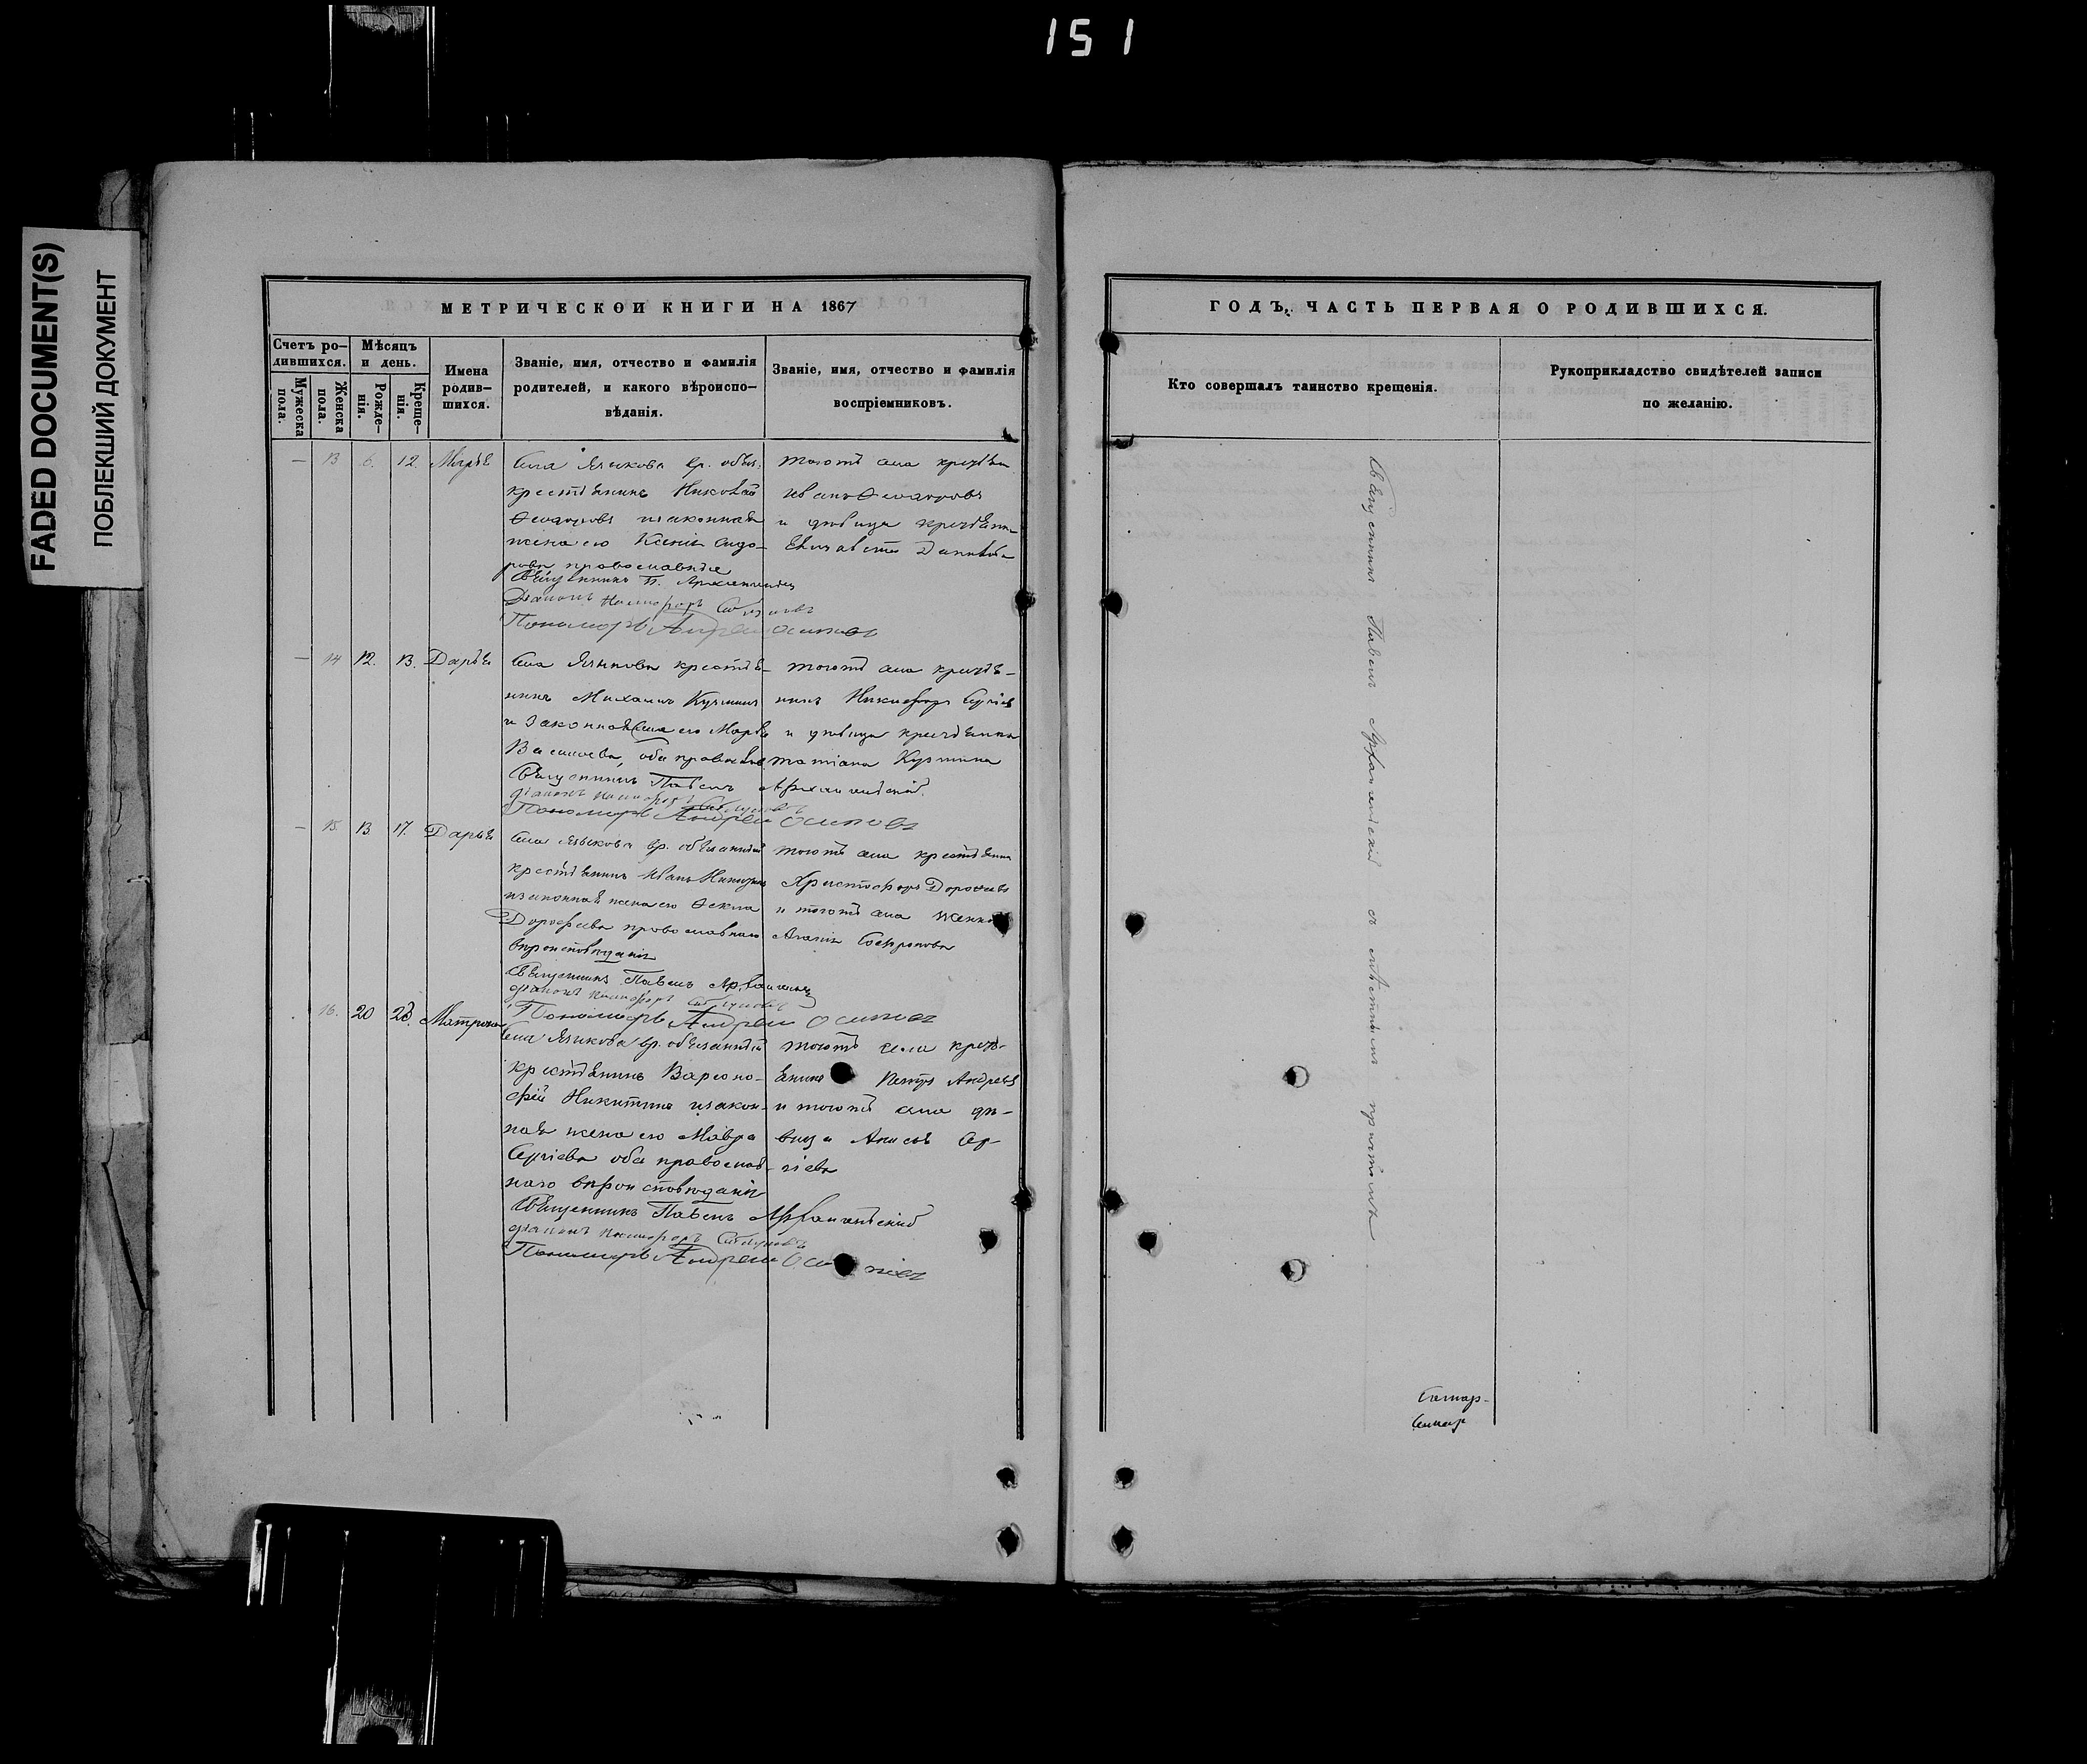 151
FADED DOCUMENT(S)
ПОБЛЕКШИЙ ДОКУМЕНТ
МЕТРИЧЕСКОЙ КНИГИ НА 1867
Счетъ ро-
дившихся.
Мужеска
пола.
Женска
пола.
Мѣсяцъ
и день.
Рожде-
нія.
Креще-
нія.
Имена
родив-
шихся.
Званіе, имя, отчество и фамилія
родителей, и какого вѣроиспо-
вѣданія.
Званіе, имя, отчество и фамилія
воспріемниковъ.
— 13 6. 12.
Села Языкова вр. обяз.
крестьянинъ Николай
законная
жена его Ксенія Сидо-
рова православные
Священникъ П. Архангельск
Дьяконъ Никифоръ
Пономарь Андрей Осиповъ
тогожъ села крестьян
Иванъ
и девица крестьян
Елизавета Данилова
— 14 12. 13. Дарья
Села Языкова крестья-
нинъ Михаилъ Кузминъ
и законная жена его Марѳа
Васильева, оба православ.
Священникъ Павелъ Архангельскій.
дьяконъ Никифоръ
Пономарь Андрей Осиповъ
тогожъ села крестья-
нинъ Никифоръ Сергіевъ
и девица крестьянка
татіана Кузмина
— 15. 13. 17. Дарья
Села Языкова вр. обязанный
крестьянинъ Иванъ
и законная жена его Ѳекла
Дорофеева православнаго
вѣроисповѣданія
Священникъ Павелъ Архангельск
дьяконъ Никифоръ
Пономарь Андрей Осиповъ
тогожъ села крестьянинъ
Христофоръ Дорофеевъ
и тогожъ села
Агапія Софронова
16. 20 23. Матрона
Села Языкова вр. обязанный
крестьянинъ Варсоно-
фій Никитинъ и закон-
ная жена его Мавра
Сергіева оба православ-
наго вѣроисповѣданія
Священникъ Павелъ Архангельскій
дьяконъ Никифоръ
Пономарь Андрей Осиповъ
тогожъ села кресть-
янинъ Петръ Андреевъ
и тогожъ села дѣ-
вица Анисья Сер-
гіева
ГОДЪ, ЧАСТЬ ПЕРВАЯ О РОДИВШИХСЯ.
Кто совершалъ таинство крещенія.
Рукоприкладство свидѣтелей записи
по желанію.
Священникъ Павелъ Архангельскій съ мѣстнымъ причтомъ